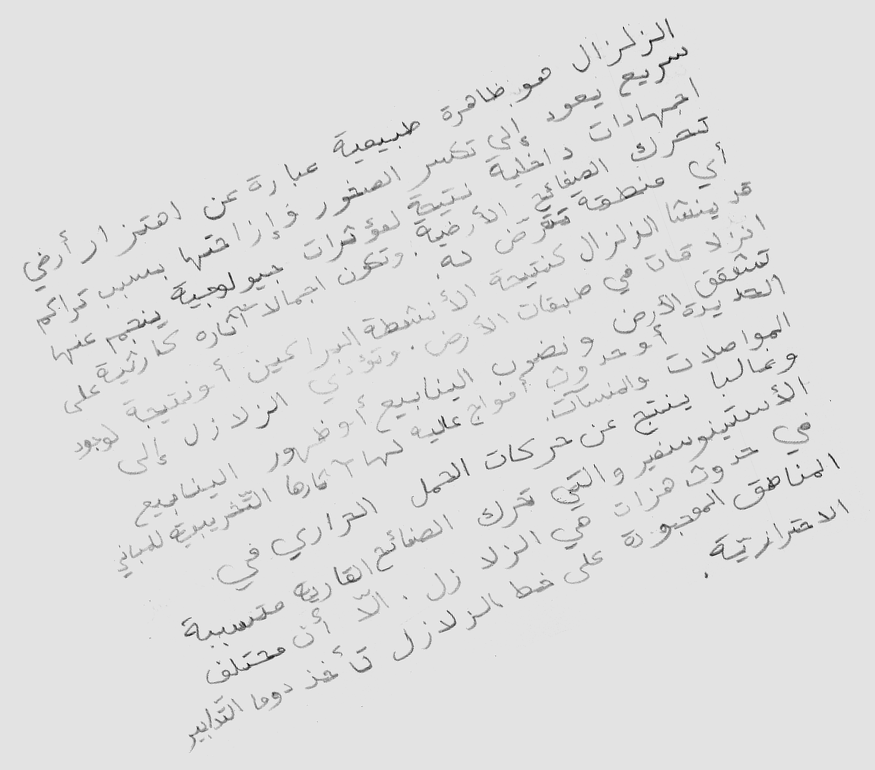 الزلزال هو ظاهرة طبيعية عبارة عن اهتزاز أرضي
سريع يعود إلى تكسر الصخور وإزاحتها بسبب تراكم
اجهادات داخلية نتيجة لمؤثرات جيولوجية ينجم عنها
تحرك الصفائح الأرضية. وتكون اجمالا آثاره كارثية على
أي منطقة تتعرّض له.
قد ينشأ الزلزال كنتيجة الأنشطة البراكين أو نتيجة لوجود
انزلاقات في طبقات الأرض. وتؤدي الزلازل إلى
تشقق الأرض ونضوب الينابيع أو ظهور الينابيع
الجديدة أو حدوث أمواج عالية لها آثارها التخريبية للمباني
المواصلات والمنشآت.
وغالبا ينتج عن حركات الحمل الحراري في
الأستينوسفير والتي تحرك الصفائح القارية متسببة
في حدوث هزات هي الزلازل. الّا أن مختلف
المناطق الموجودة على خط الزلازل تأخذ دوما التّدابير
الاحترازيّة.